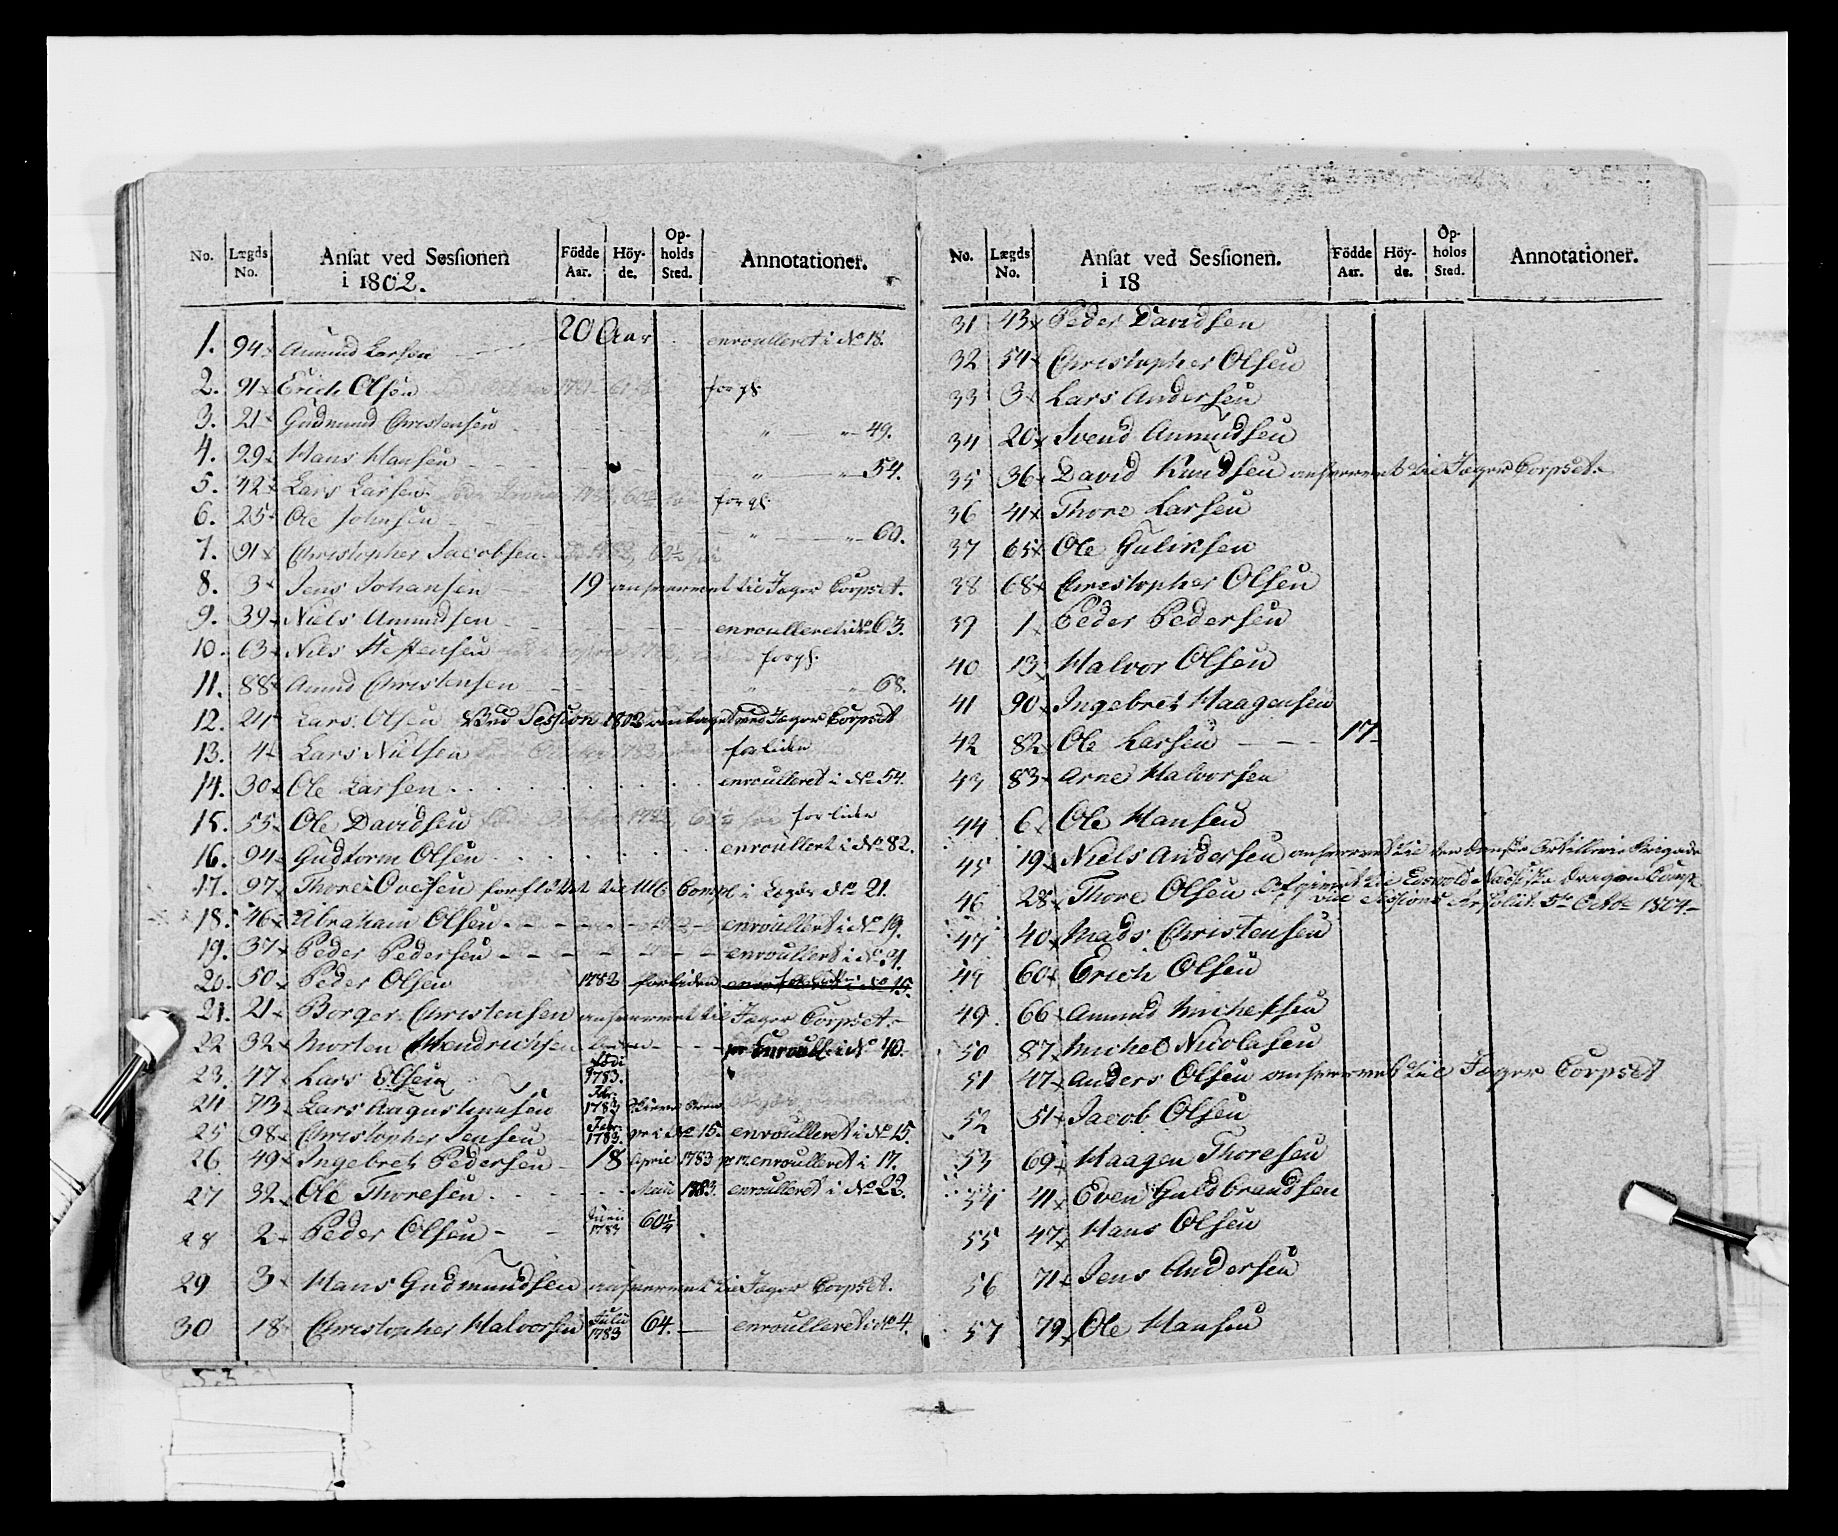 No. Lægds No. Ansat ved Sessionen i 1802. Födde Aar. Höyde. Opholds Sted. Annotationer.
20 Aar
1. 94 Amund Larsen enroulleret i No 18.
2. 91 Erich Olsen
3. 21 Gudmund Christensen " " 49.
4. 29 Hans Hansen " " 54.
5. 42 Lars Larsen
6. 25 Ole Johnsen " " 60.
7. 91 Christopher Jacobsen
8. 3 Jens Johansen 19 til Jæger Corpset.
9. 39 Niels Amundsen enroulleret i No 63.
10. 63 Nils
11. 88 Amund Christensen " " 68.
12. 24 Lars Olsen Ved Session 1802 antaget ved Jæger Corpset
13. 4 Lars Nielsen forliden
14. 30 Ole Larsen enroulleret i No 54.
15. 55 Ole Davidsen forliden
16. 94 Gudtorm Olsen enroullert i No 82.
17. 97 Thore Ovesen forflöttet til Ull: Comp: i Legds No 21.
18. 46 Abraham Olsen enroullert i No 19.
19. 37 Peder Pedersen enroullert i No 9.
20. 50 Peder Olsen 1782 forliden
21. 21 Borger Christensen til Jæger Corpset
22 32 Morten Hendrichsen Enroull: i No 40.
23. 47 Lars Olsen födt 1783.
24 73 Lars Augustinusen 1783
25 98 Christopher Jensen Febr: 1783. No 15. enroulleret i No 15.
26. 49 Ingebret Pedersen 18 April 1783 enroulleret i 17.
27 32 Ole Thoresen Maii 1783. enroulleret i No 22.
28 2 Peder Olsen Junii 1783 60 1/4
29 3 Hans Gudmundsen til Jæger Corpset.
30 18 Christopher Halvorsen Julii 1783 64. enroulleret i No 4.
No. Lægds No. Ansat ved Sessionen. i 18 Födde Aar. Höyde. Opholds Sted. Annotationer.
31 43 Peder Davidsen
32 54 Christopher Olsen
33 3 Lars Andersen
34 20 Svend Anmundsen
35 36 David Knudsen til Jæger Corpset.
36 41 Thore Larsen
37 65 Ole Guliksen
38 68 Christopher Olsen
39 1 Peder Pedersen
40 13 Halvor Olsen
41 90 Ingebret Haagensen
42 82 Ole Larsen 17
43 83 Arne Halvorsen
44 6 Ole Hansen
45 19 Niels Andersen til den Danske Artillerie Brigade
46 28 Thore Olsen til Eidsvold Dragon Comp: 5te Octbr 1804
47 40 Mads Christensen
49 60 Erich Olsen
49 66 Amund Michelsen
50 87 Michel Nicolasen
51 47 Anders Olsen til Jæger Corpset
52 51 Jacob Olsen
53 69 Haagen Thoresen
54 41 Even Guldbrandsen
55 47 Hans Olsen
56 71 Jens Andersen
57 79 Ole Hansen